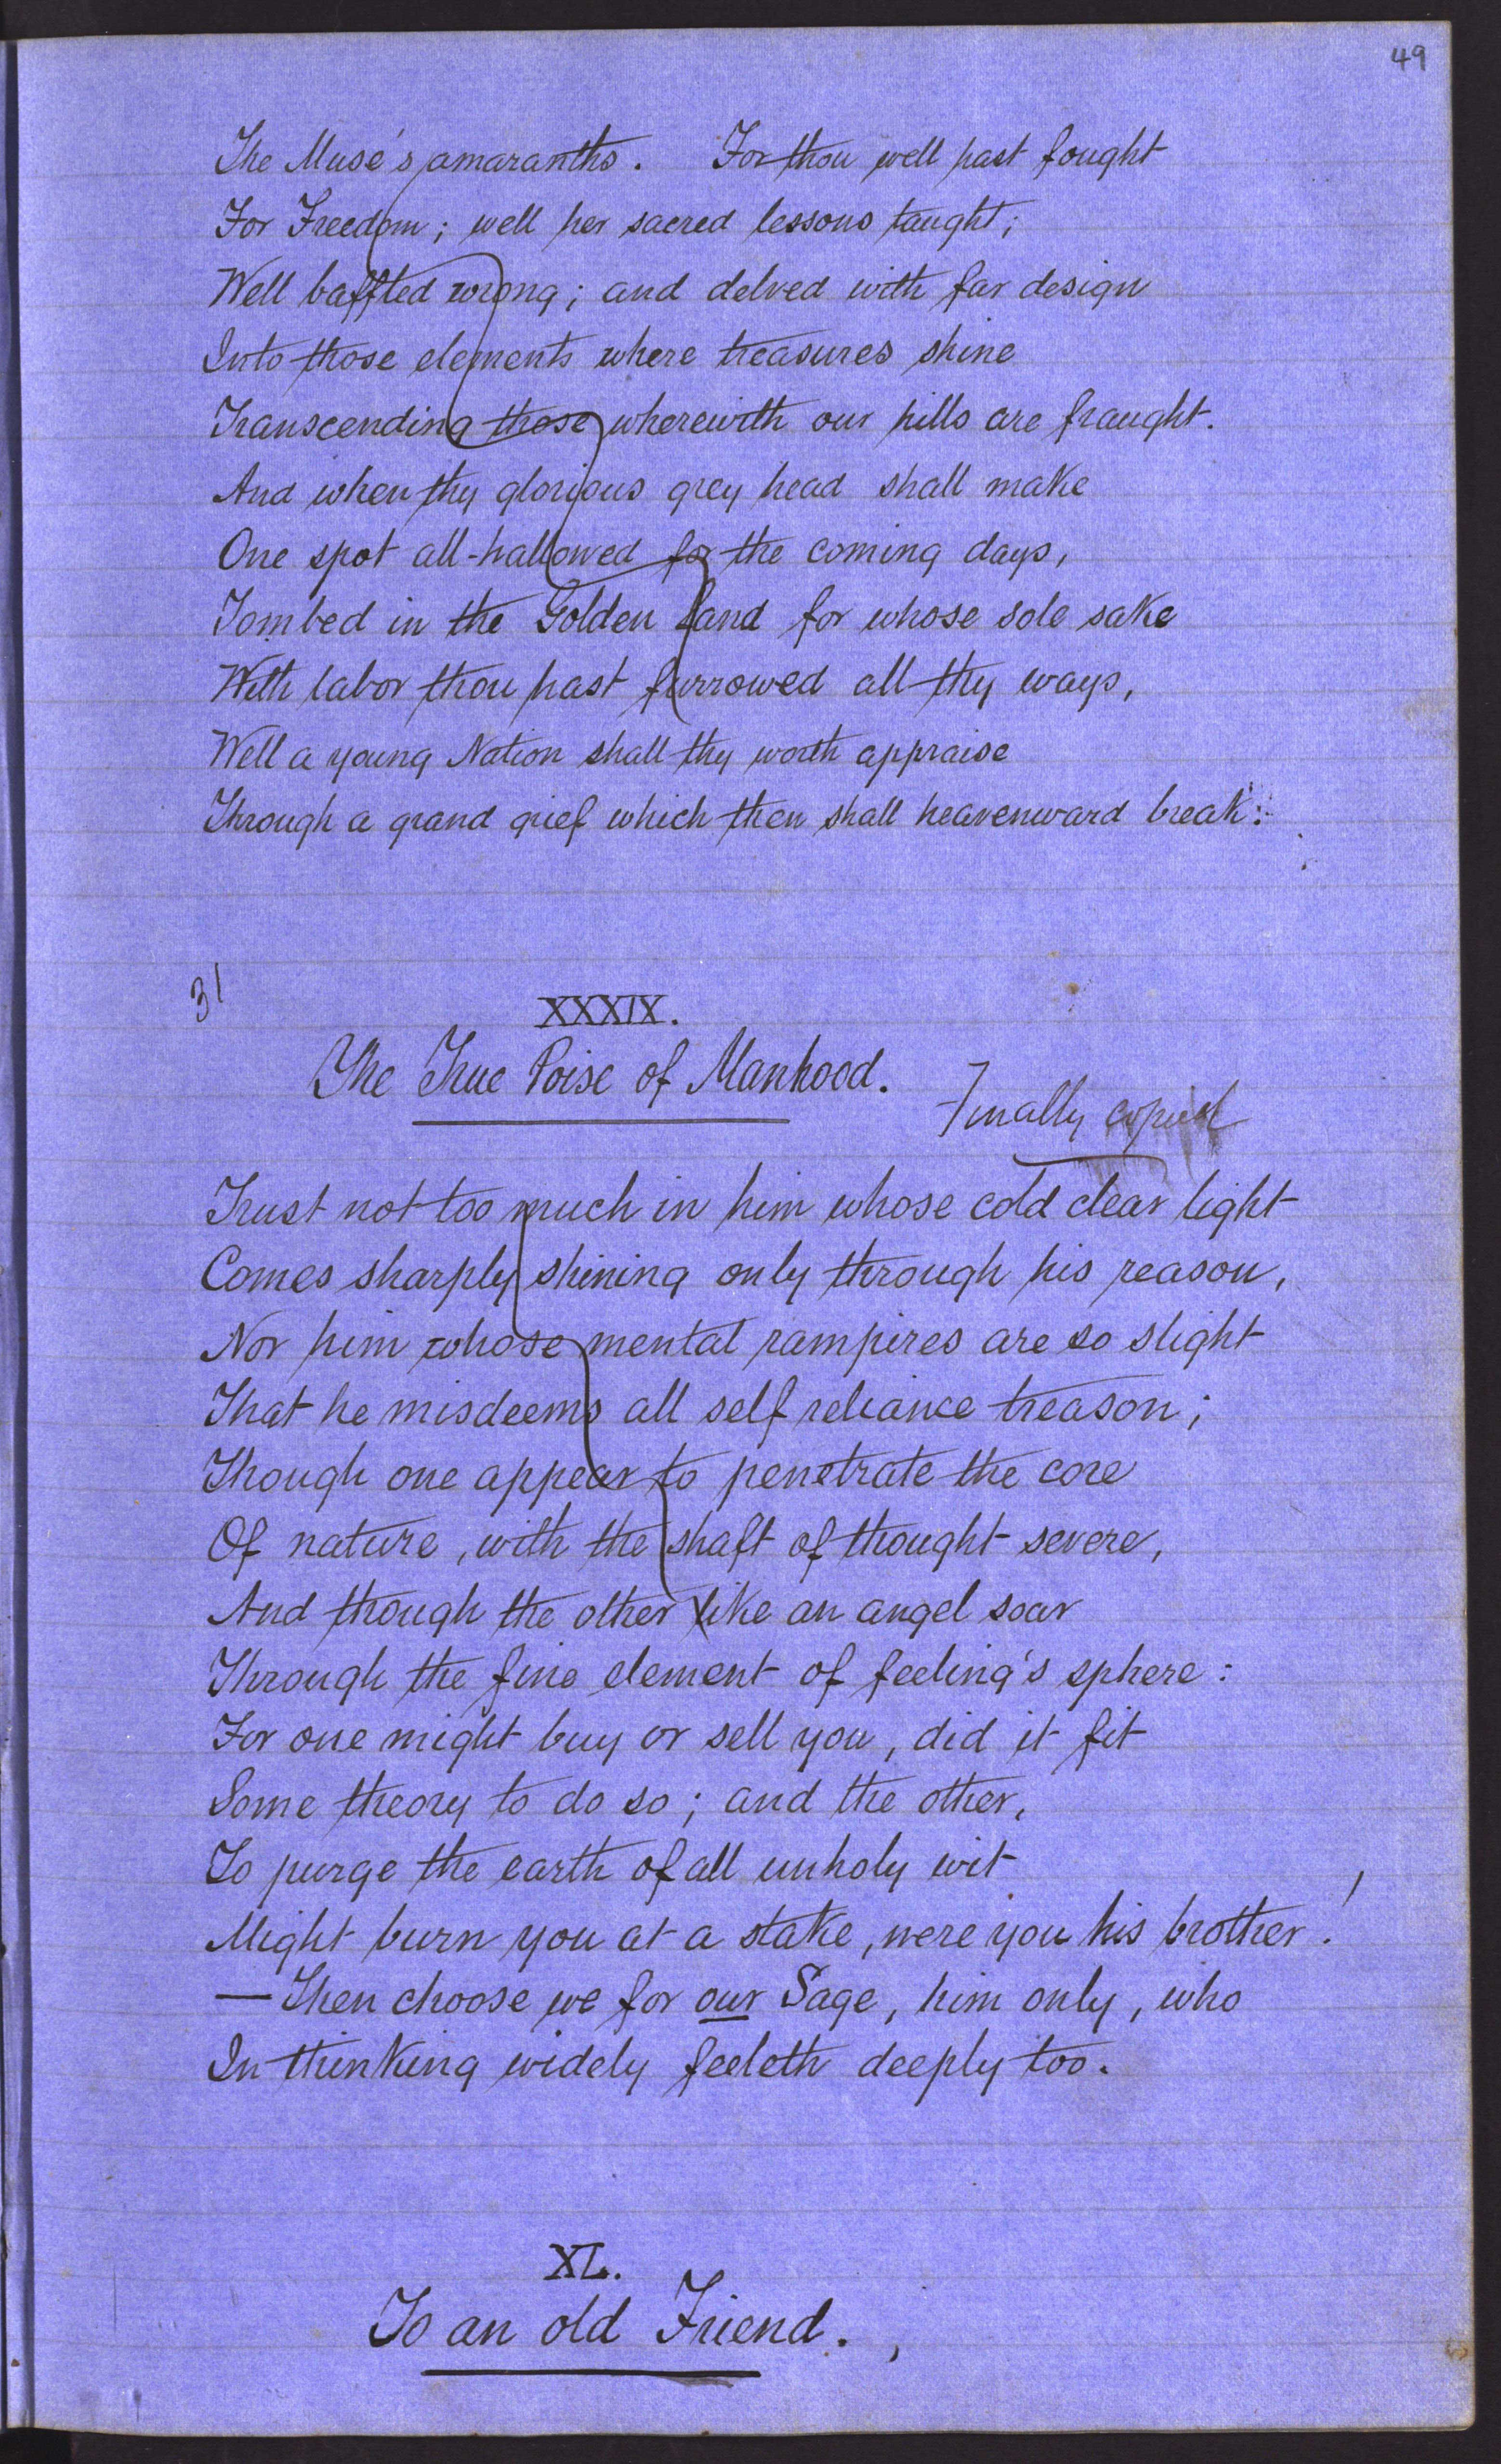 49
The Muse's amaranths. For thou well hast fought
For Freedom; well her sacred lessons taught;
Well baffled wrong; and delved with far design
Into those elements where treasures shine
Transcending those wherewith our hills are fraught.
And when thy glorious grey head shall make
One spot all-hallowed for the coming days,
Tombed in the Golden Land for whose sole sake
With labor thou hast furrowed all thy ways,
Well a young Nation shall thy worth appraise
Through a grand grief which then shall heavenward break.
31
XXXIX.
The True Poise of Manhood.
Finally copied
Trust not too much in him whose cold clear light
Comes sharply shining only through his reason,
Nor him whose mental rampires are so slight
That he misdeems all self reliance treason;
Though one appear to penetrate the core
Of nature, with the shaft of thought severe,
And though the other like an angel soar
Through the fine element of feeling's sphere:
For one might buy or sell you, did it fit
Some theory to do so; and the other,
To purge the earth of all unholy wit
Might burn you at a stake, were you his brother!
— Then choose we for our Sage, him only, who
In thinking widely feeleth deeply too.
XL.
To an old Friend.